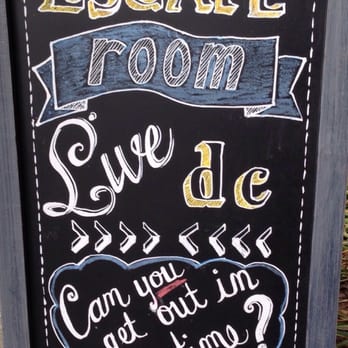 ESCAPE
room
Live dc
Can you
get out in
time?